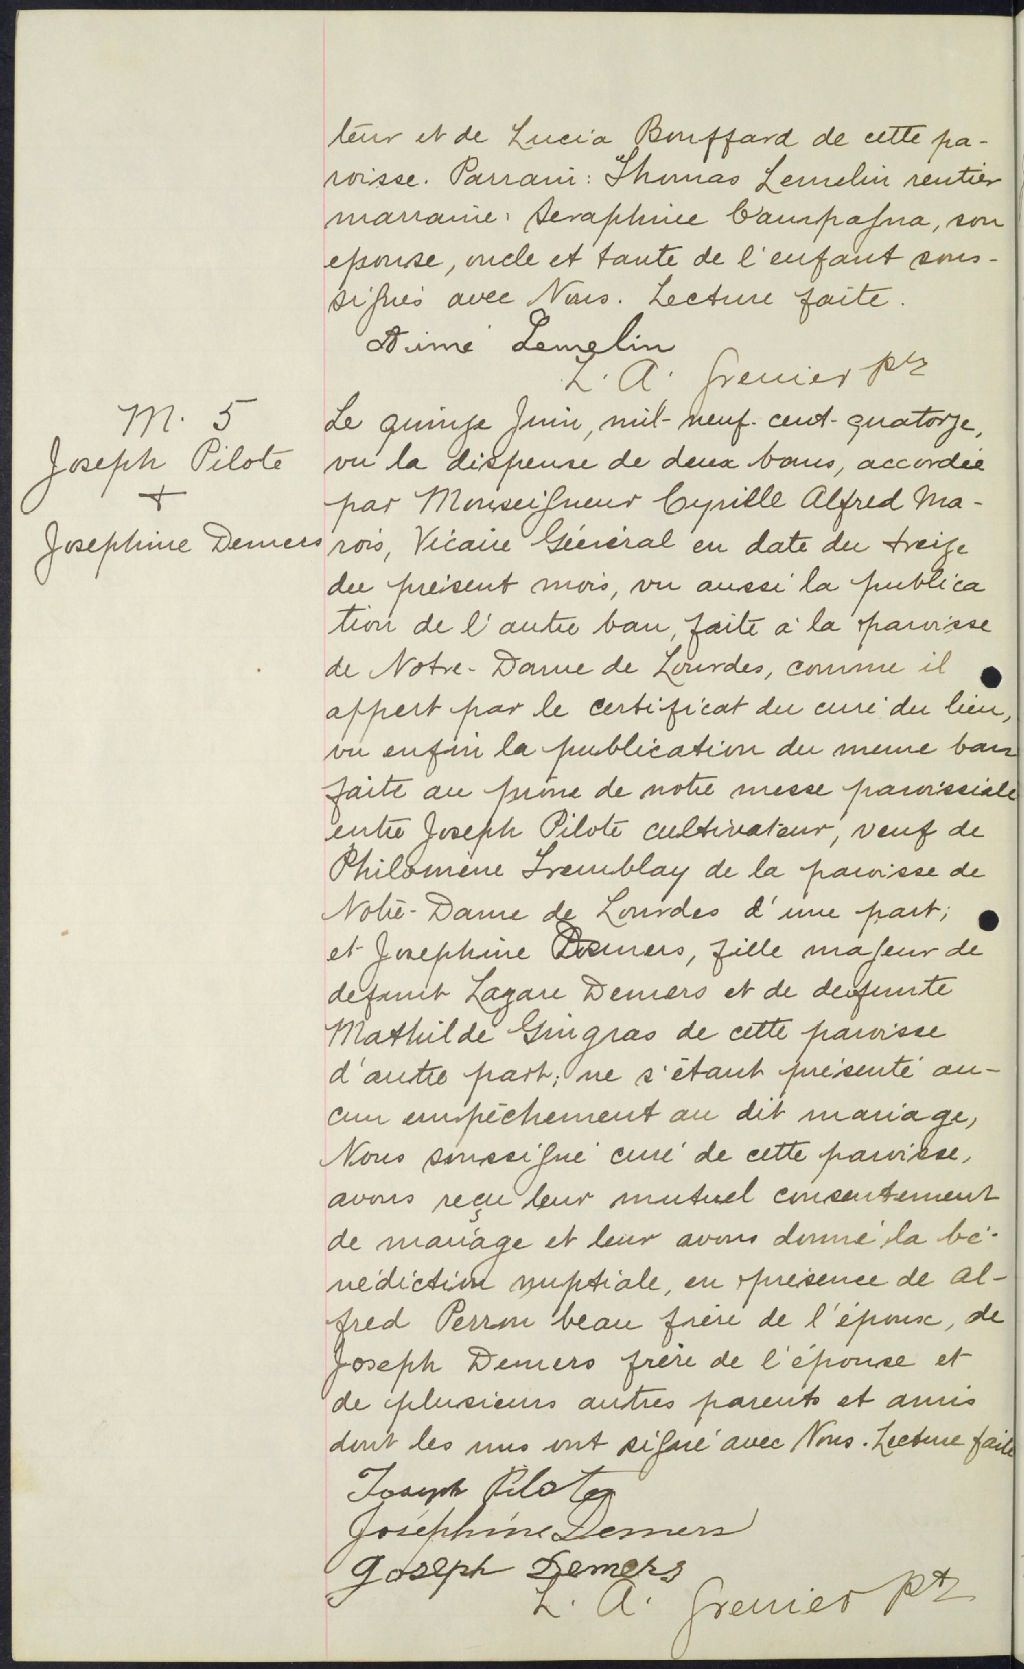 teur et de Lucia Bouffard de cette pa-
roisse. Parrain: Thomas Lemelin rentier
marraine: Seraphine Campagna, son
epouse, oncle et tante de l'enfant sous-
signés avec Nous. Lecture faite.
Aimé Lemelin
L. A. Grenier ptr
M. 5
Joseph Pilote
+
Josephine Demers
Le quinze Juin, mil-neuf-cent-quatorze,
vu la dispense de deux bans, accordée
par Monseigneur Cyrille Alfred Ma-
rois, Vicaire Général en date du treize
du présent mois, vu aussi la publica
tion de l'autre ban, faite à la paroisse
de Notre-Dame de Lourdes, comme il
appert par le certificat du curé du lieu,
vu enfin la publication du meme ban
faite au prône de notre messe paroissiale
entre Joseph Pilote cultivateur, veuf de
Philomène Tremblay de la paroisse de
Notre-Dame de Lourdes d'une part;
et Josephine Demers, fille majeur de
defunt Lazare Demers et de defunte
Mathilde Gingras de cette paroisse
d'autre part; ne s'étant présenté au-
cun empêchement au dit mariage,
Nous soussigné curé de cette paroisse,
avons reçu leur mutuel consentement
de mariage et leur avons donné la bé-
nédiction nuptiale, en présence de Al-
fred Perron beau frère de l'époux, de
Joseph Demers frère de l'épouse et
de plusieurs autres parents et amis
dont les uns ont signé avec Nous. Lecture faite
Joseph Pilote
Joséphine Demers
Joseph Demers
L. A. Grenier ptr